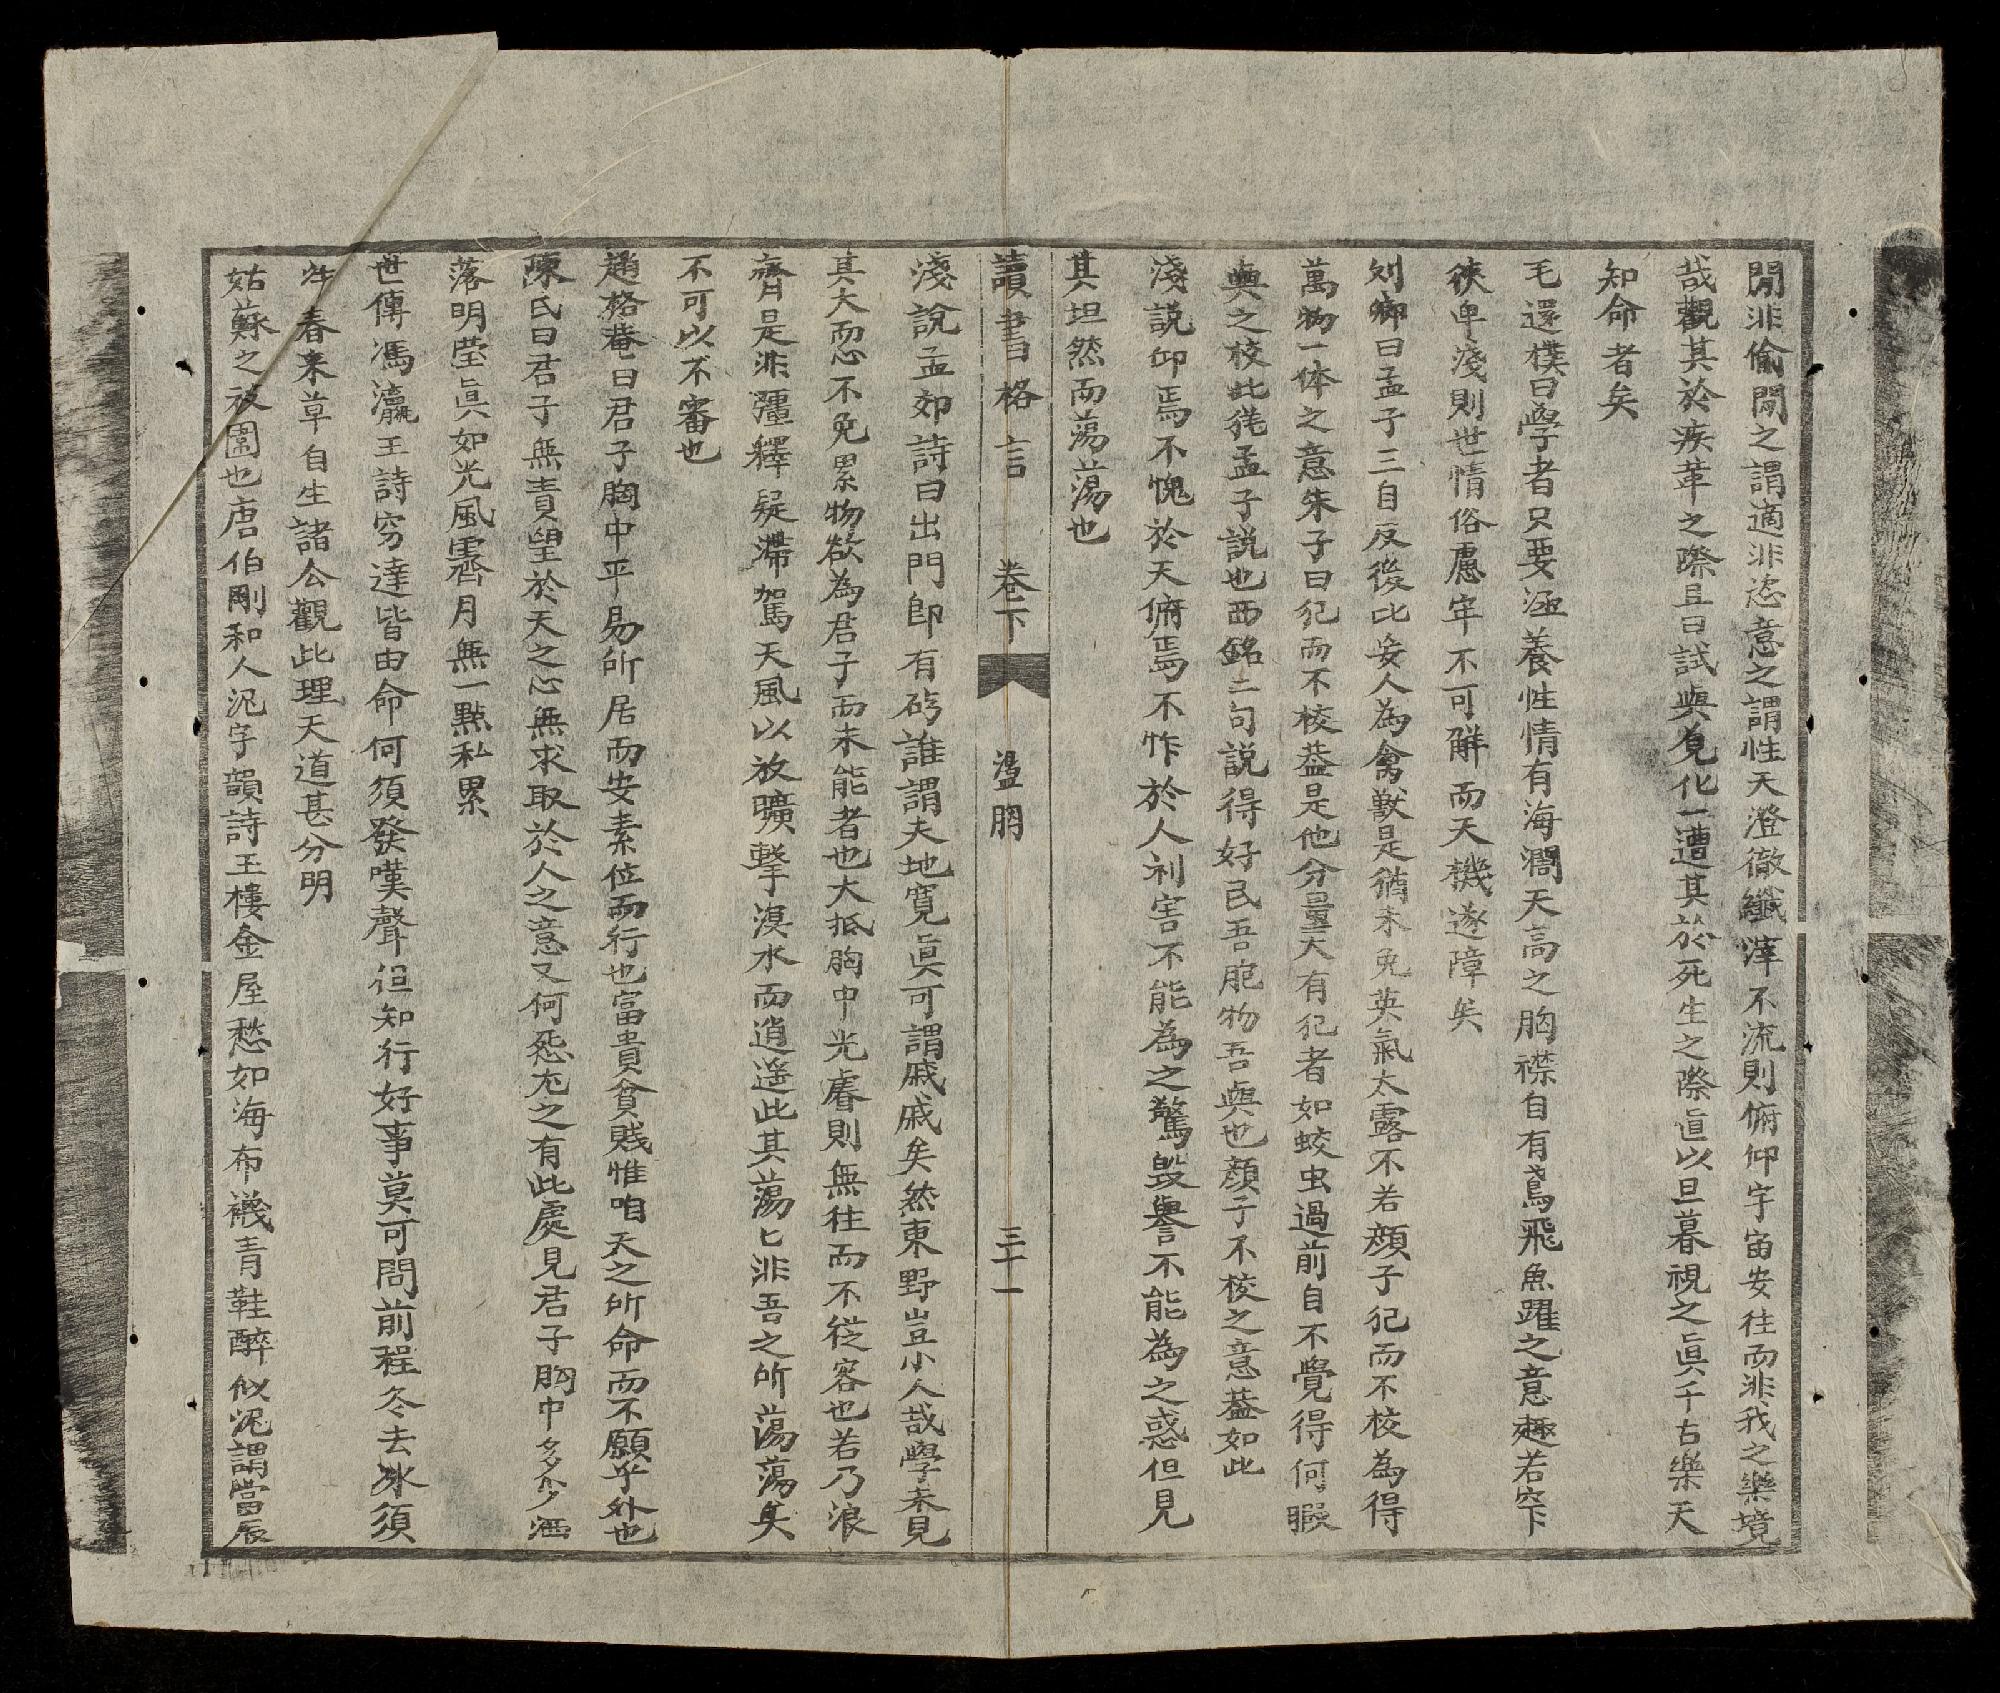 閒非偷閒之謂適非恣意之謂性天澄徹纖滓不流則俯仰宇宙安往而非我之樂境
哉觀其於疾革之際且曰試與觅化一遭其於死生之際直以旦暮視之眞千古樂天
知命者矣
毛還樸曰學者只要涵養性情有海濶天高之胸襟自有鳶飛魚躍之意趣若窄下
狹卑淺則世情俗慮牢不可觧而天機遂障矣
刘鄉曰孟子三自反後比妄人為禽獸是猶未免英氣太露不若顔子犯而不校為得
萬物一体之意朱子曰犯而不校葢是他分量大有犯者如蛟虫過前自不覺得何暇
與之校此猐孟子説也西銘二句説得好民吾胞物吾與也顔子不校之意葢如此
淺説仰焉不愧於天俯焉不怍於人利害不能為之驚毀譽不能為之惑但見
其坦然而蕩蕩也
讀書格言 卷下 盪胸 三十一
淺說孟郊詩曰出門即有碍誰謂天地寬眞可謂戚戚矣然東野豈小人哉學未見
其大而心不免累物欲為君子而未能者也大抵胸中光睿則無往而不從容也若乃浪
齊是非彊釋疑滯駕天風以放曠擊溟水而逍遥此其蕩匕非吾之所蕩蕩矣
不可以不審也
趙格菴曰君子胸中平易所居而安素位而行也富貴貧賤惟咱天之所命而不願乎外也
陳氏曰君子無責望於天之心無求取於人之意又何怨尤之有此處見君子胸中多少洒
落明瑩眞如光風霽月無一點私累
世傳馮瀛王詩穷達皆由命何須發嘆聲但知行好事莫可問前程冬去冰須
泮春来草自生諸公觀此理天道甚分明
姑蘇之祓圍也唐伯剛和人泥字韻詩玉樓金屋愁如海布襪青鞋醉似泥謂當辰